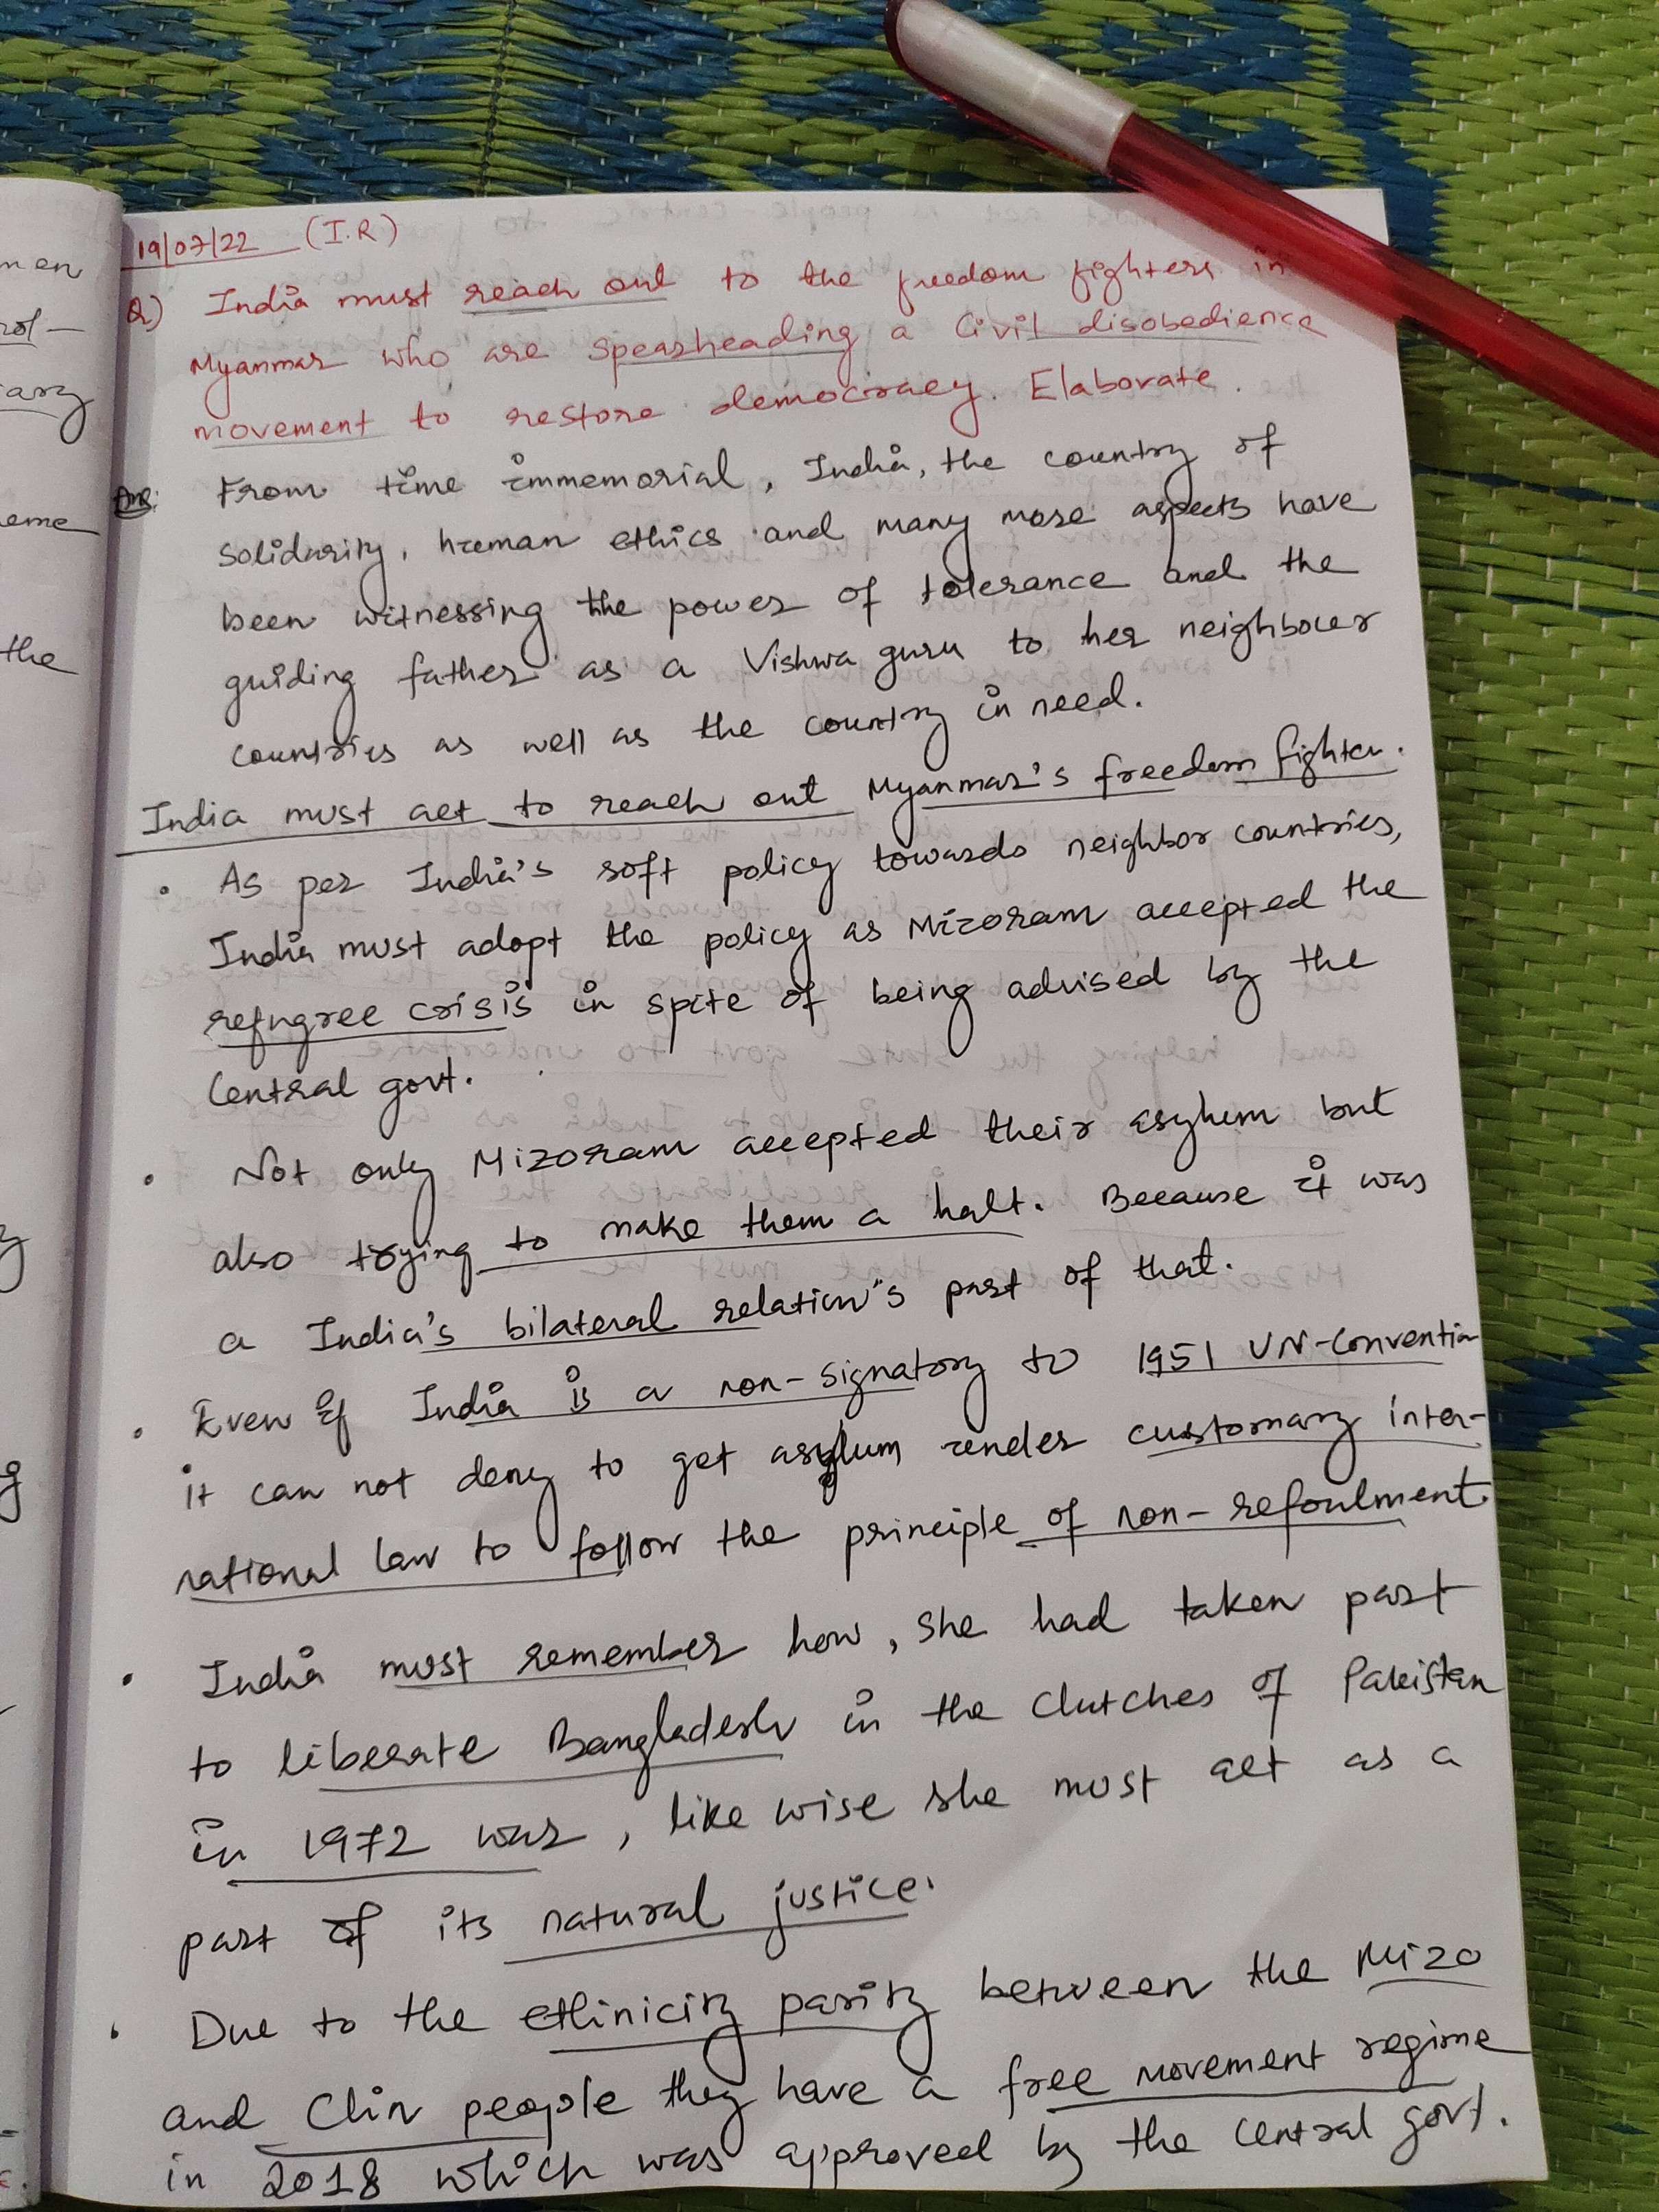 19/07/22 (I.R)
Q) India must reach out to the freedom fighters in
Myanmar who are spearheading a Civil disobedience
movement to restore democracy. Elaborate.
Ans: From time immemorial, India, the country of
solidarity, human ethics and many more aspects have
been witnessing the power of tolerance and the
guiding father as a Vishwa guru to her neighbour
countries as well as the country in need.
India must act to reach out Myanmar's freedom fighter.
• As per India's soft policy towards neighbor countries,
India must adopt the policy as Mizoram accepted the
refugree crisis in spite of being advised by the
Central govt.
• Not only Mizoram accepted their asylum but
also trying to make them a halt. Because it was
a India's bilateral relation's part of that.
• Even if India is a non-signatory to 1951 UN-Convention
it can not deny to get asylum render customary inter-
national law to follow the principle of non-refoulment.
• India must remember how, she had taken part
to liberate Bangladesh in the clutches of Pakistan
in 1972 war, like wise she must act as a
part of its natural justice.
• Due to the ethinicity parity between the Mizo
and Chin people they have a free movement regime
in 2018 which was approved by the Central govt.
men
rol-
ary
eme
the